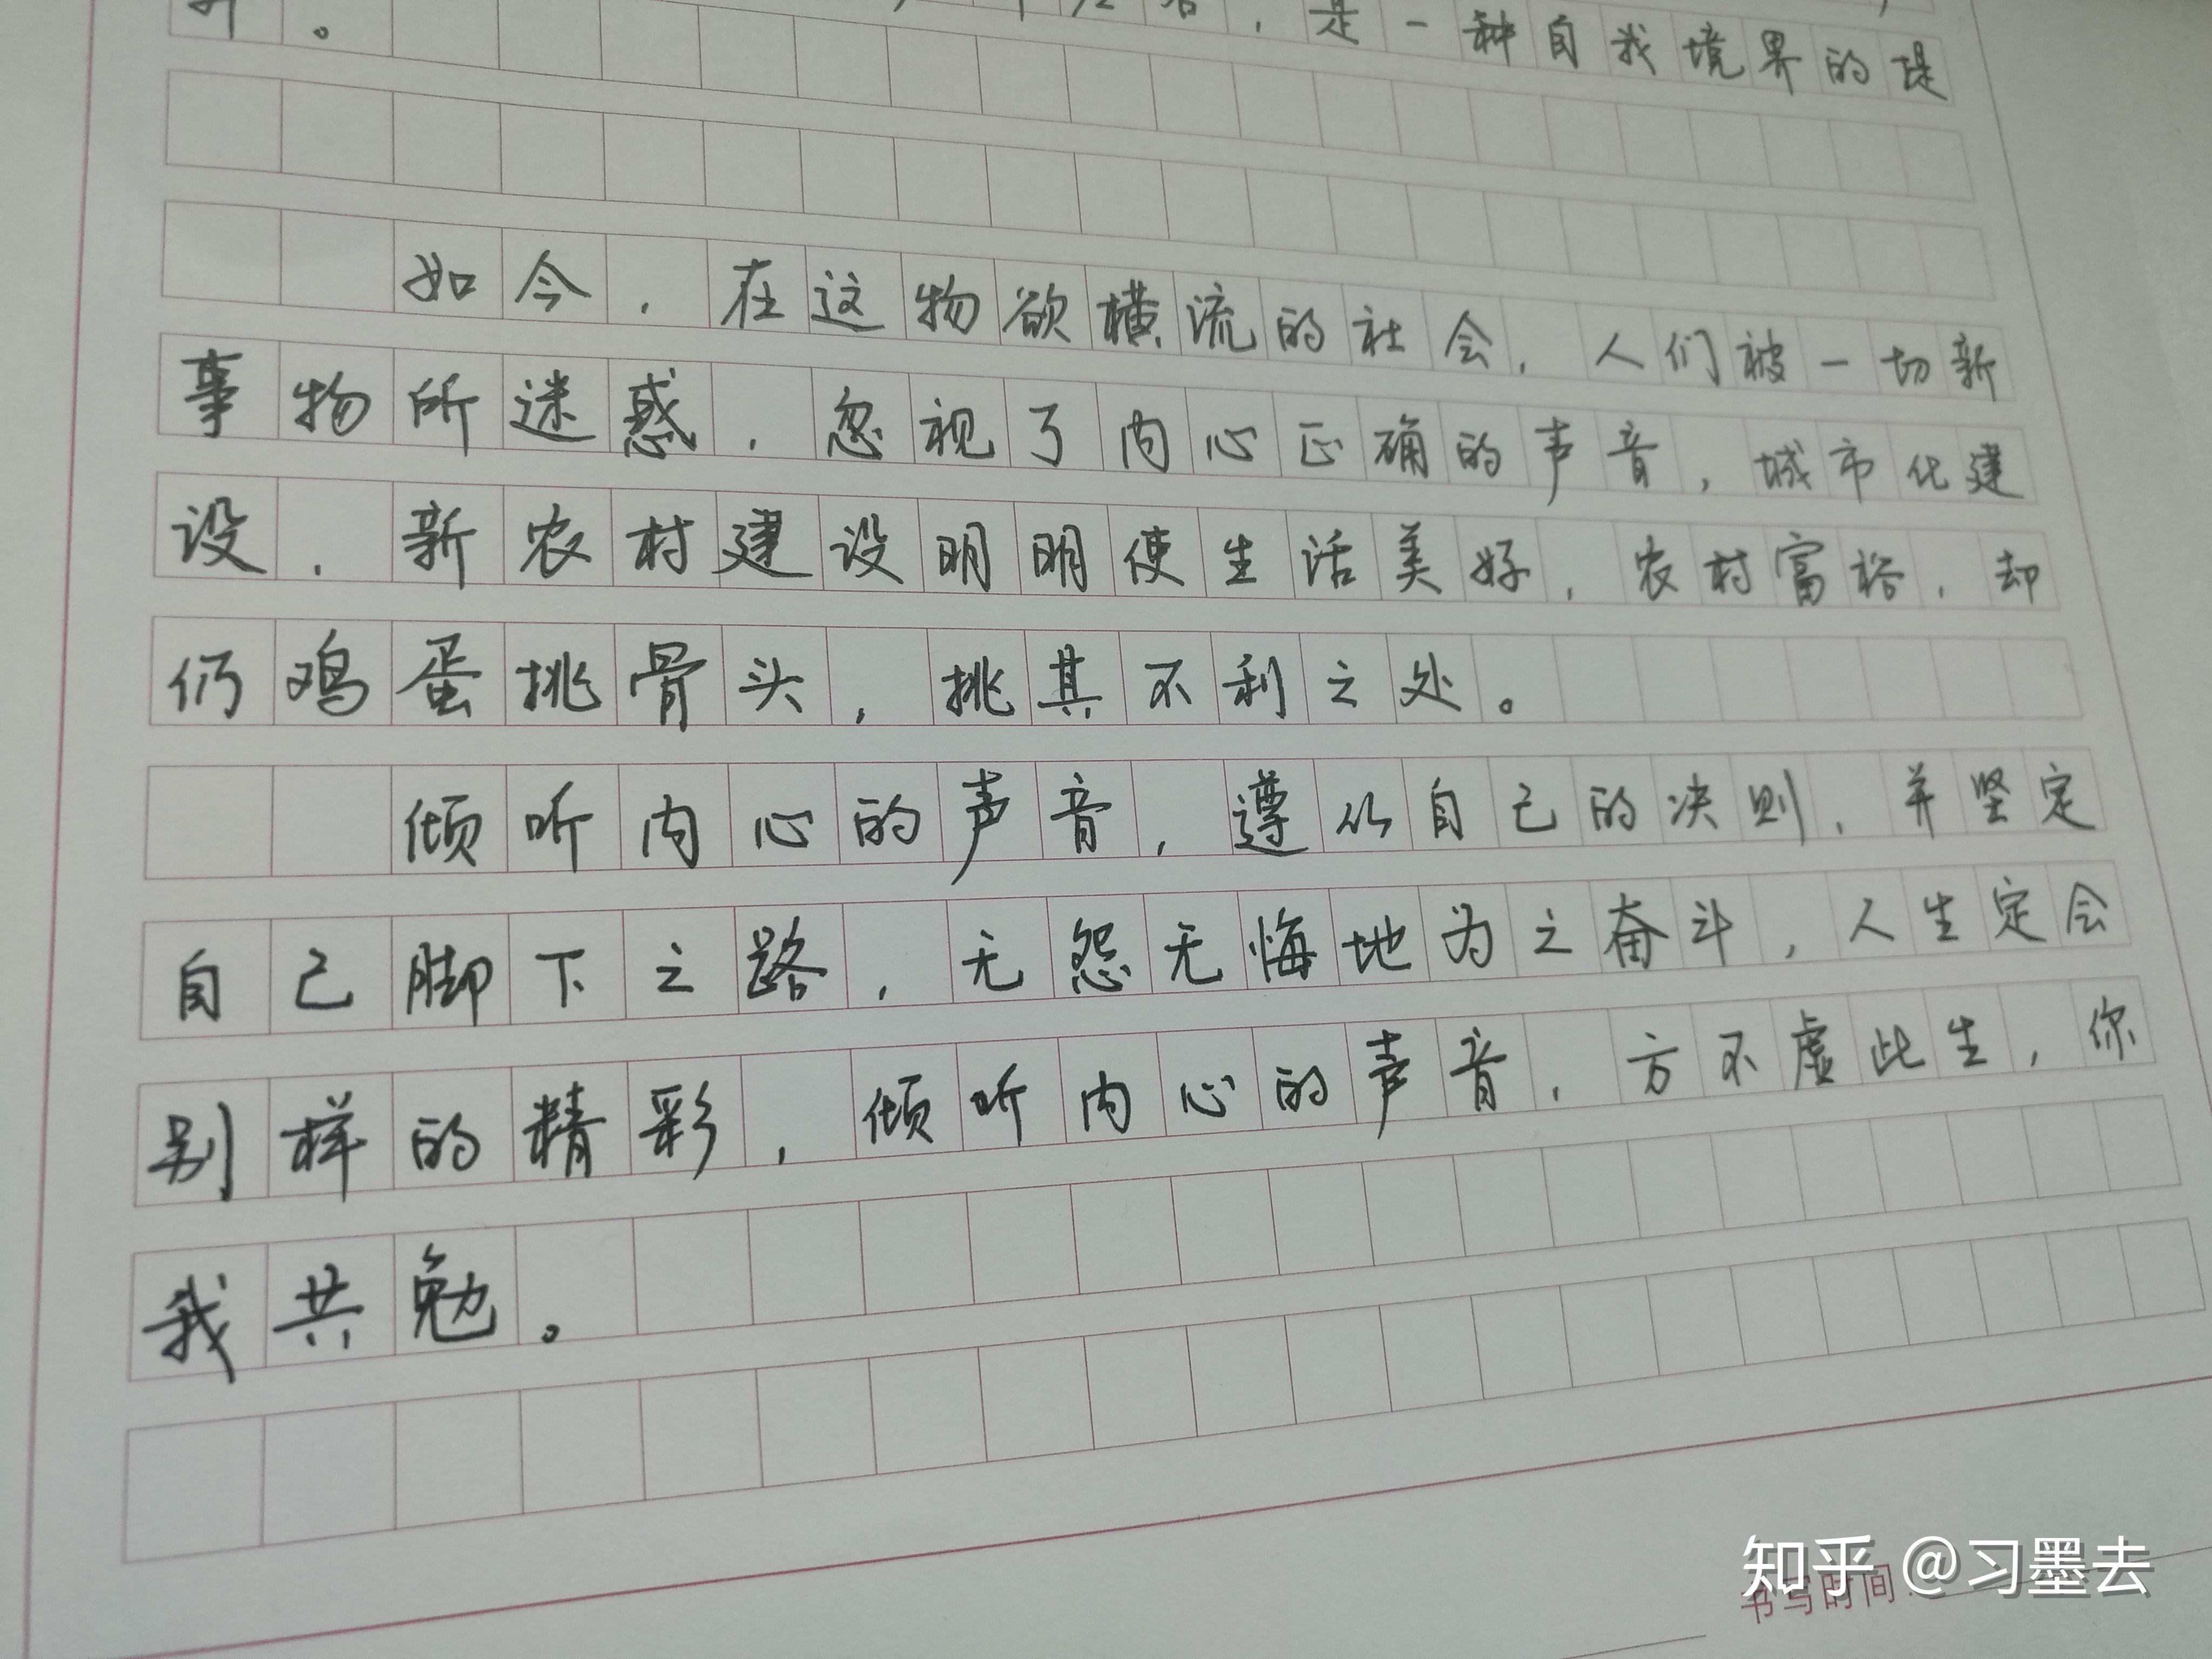 是一种自我境界的提
升。
如今，在这物欲横流的社会，人们被一切新
事物所迷惑，忽视了内心正确的声音，城市化建
设，新农村建设明明使生活美好，农村富裕，却
仍鸡蛋挑骨头，挑其不利之处。
倾听内心的声音，遵从自己的决则，并坚定
自己脚下之路，无怨无悔地为之奋斗，人生定会
别样的精彩，倾听内心的声音，方不虚此生，你
我共勉。
知乎 @习墨去
书写时间